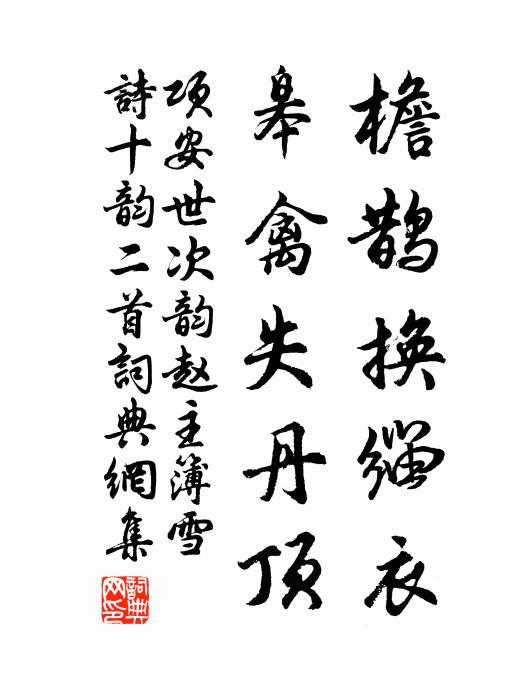 檐鵲換緇衣
皋禽失丹頂
項安世次韵赵主簿雪
詩十韵二首詞典網集
詞典網印